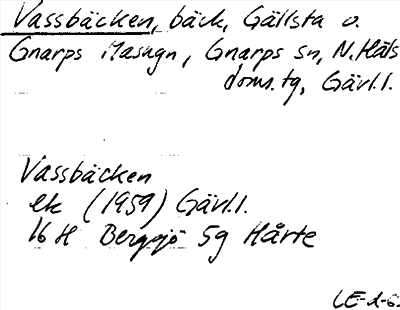 Vassbäcken, bäck, Gällsta o.
Gnarps Masugn, Gnarps sn, N. Häls
doms. tg, Gävl.l.
Vassbäcken
ek (1959) Gävl.l.
16 H Bergsjö 5g Hårte